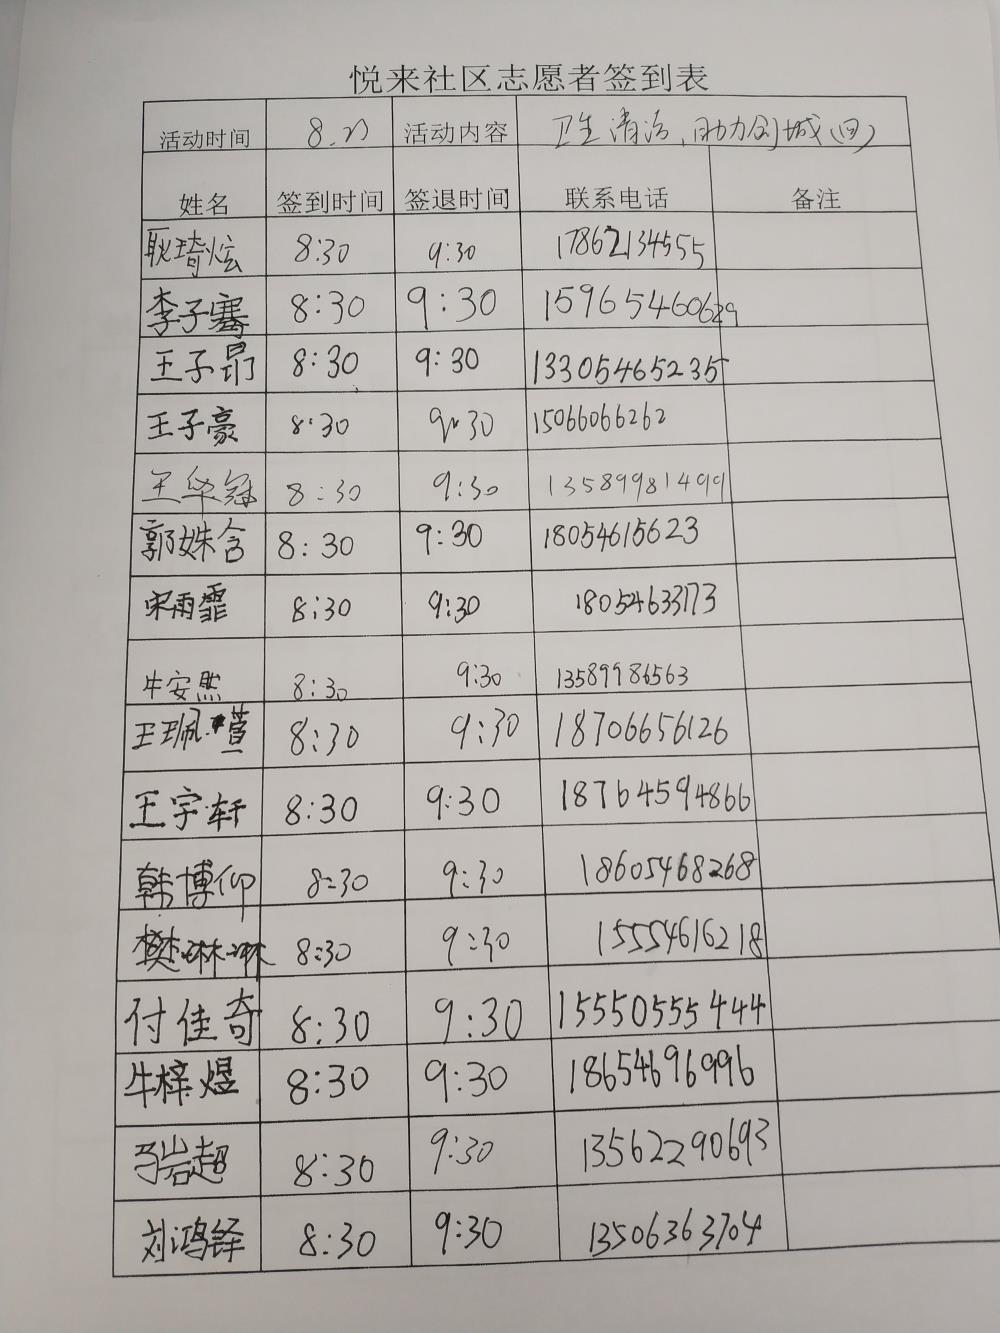 悦来社区志愿者签到表
活动时间 8.21 活动内容 卫生清洁，助力创城（四）
姓名 签到时间 签退时间 联系电话 备注
耿琦炫 8:30 9:30 17862134555
李子骞 8:30 9:30 15965460629
王子昂 8:30 9:30 13305465235
王子豪 8:30 9:30 15066066262
王华冠 8:30 9:30 13589981499
郭姝含 8:30 9:30 18054615623
宋雨霏 8:30 9:30 18054633173
牛安然 8:30 9:30 13589986563
王珮萱 8:30 9:30 18706656126
王宇轩 8:30 9:30 18764594866
韩博仰 8:30 9:30 18605468268
樊琳琳 8:30 9:30 15554616218
付佳奇 8:30 9:30 15550555444
牛梓煜 8:30 9:30 18654696996
马岩超 8:30 9:30 13562290693
刘鸿铎 8:30 9:30 13506363704